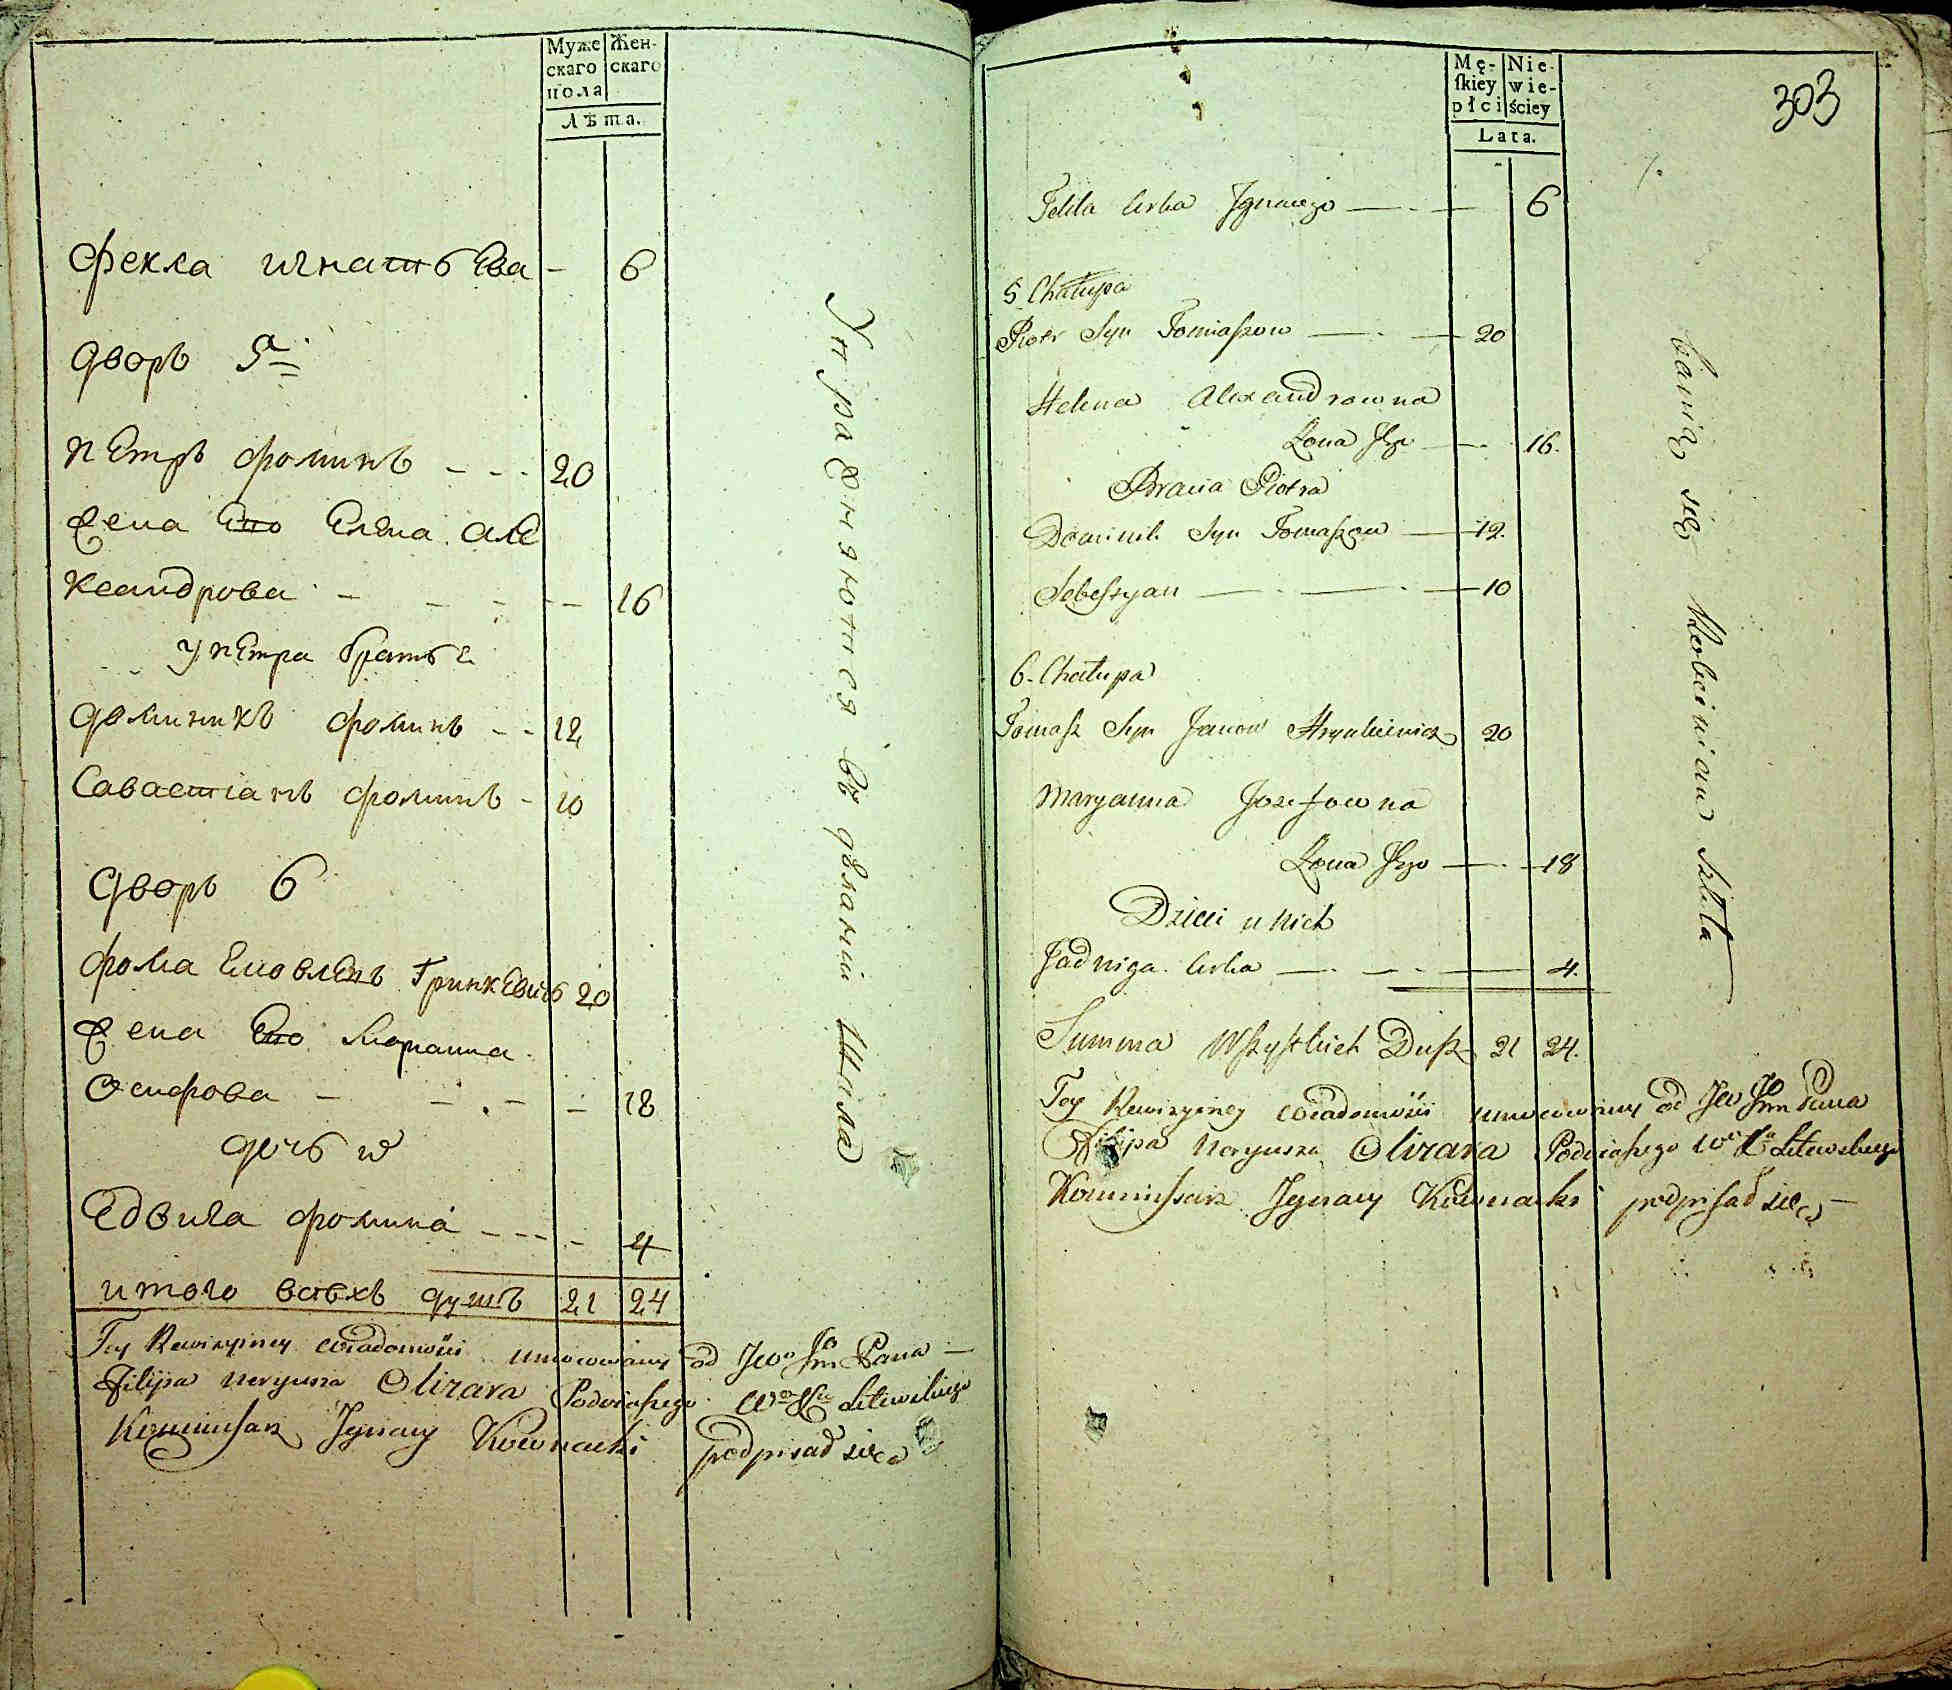 Муже
скаго
пола
Жен-
скаго
Лѣта.
Фекла Игнатьева - 6
дворъ 5й
Петръ Фоминъ - - - 20
Жена Его Елена Але
ксандрова - - - - 16
у Петра братья
Доминикъ Фоминъ - - 12
Савастіанъ Фоминъ - 10
дворъ 6
Фома Ивановъ Гринкевичь 20
Жена Его Марианна
Осифова - - - - 18
дочь их
Едвига Фомина - - - - 4
итого всѣхъ душъ 21 24
Упражняются въ дѣланіи
Tey Rewizyiney wiadomości umocowany od JWo Jm Pana
Filipa Neryusza Olizara Podczaszego Wo Xa Litewskiego
Kommissarz Ignacy Kownacki podpisał się
303
Mę-
skiey
płci
Nie-
wie-
ściey
Lata.
Tekla Córka Ignacego — 6
5 Chałupa
Piotr Syn Tomaszow — 20
Helena Alexandrowna
Żona Jego — 16.
Bracia Piotra
Dominik Syn Tomaszow — 12.
Sebestyan — 10
6. Chałupa
Tomasz Syn Janow Hrynkiewicz 20
Maryanna Jozefowna
Żona Jego — 18
Dzieci u nich
Jadwiga Córka — 4.
Summa Wszystkich Dusz 21 24.
bawią się Robieniem szkła
Tey Rewizyiney wiadomości umocowany od JW Jm Pana
Filipa Neryusza Olizara Podczaszego Wo Xa Litewskiego
Kommissarz Ignacy Kownacki podpisał się